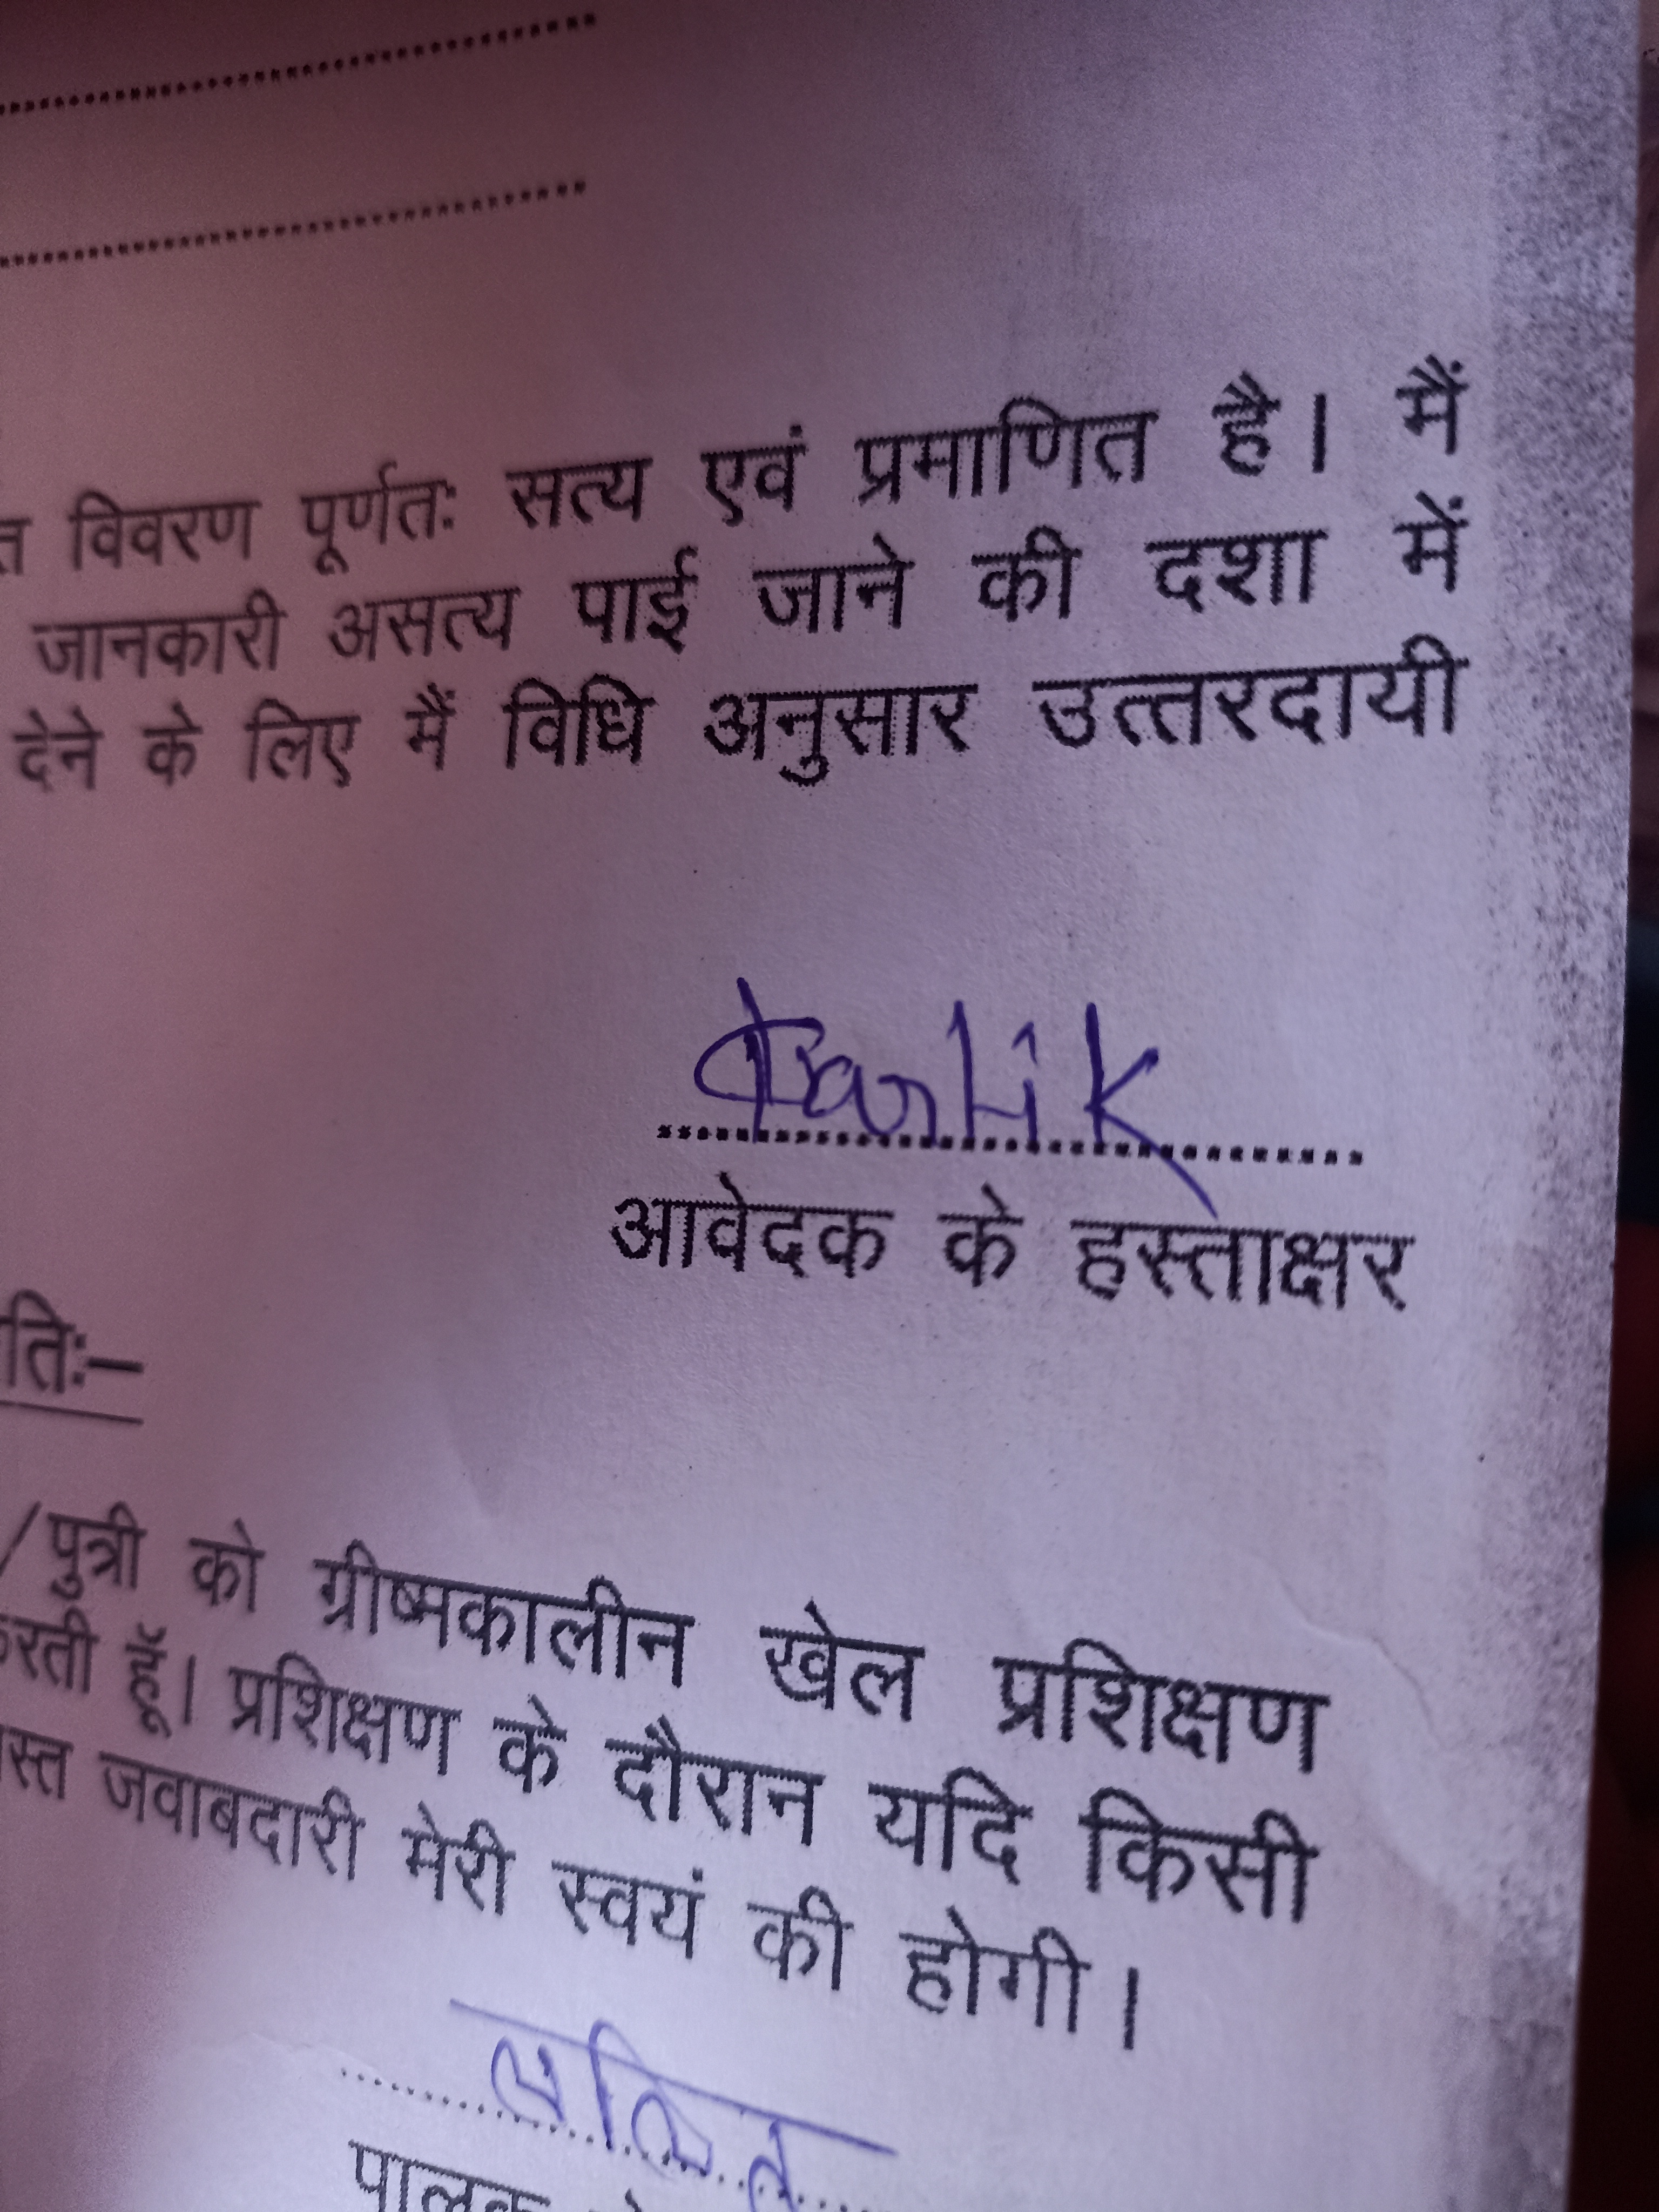 विवरण पूर्णतः सत्य एवं प्रमाणित है। मैं
जानकारी असत्य पाई जाने की दशा में
देने के लिए मैं विधि अनुसार उत्तरदायी
Kartik
आवेदक के हस्ताक्षर
ति:–
/पुत्री को ग्रीष्मकालीन खेल प्रशिक्षण
रती हूॅ। प्रशिक्षण के दौरान यदि किसी
स्त जवाबदारी मेरी स्वयं की होगी।
ललित